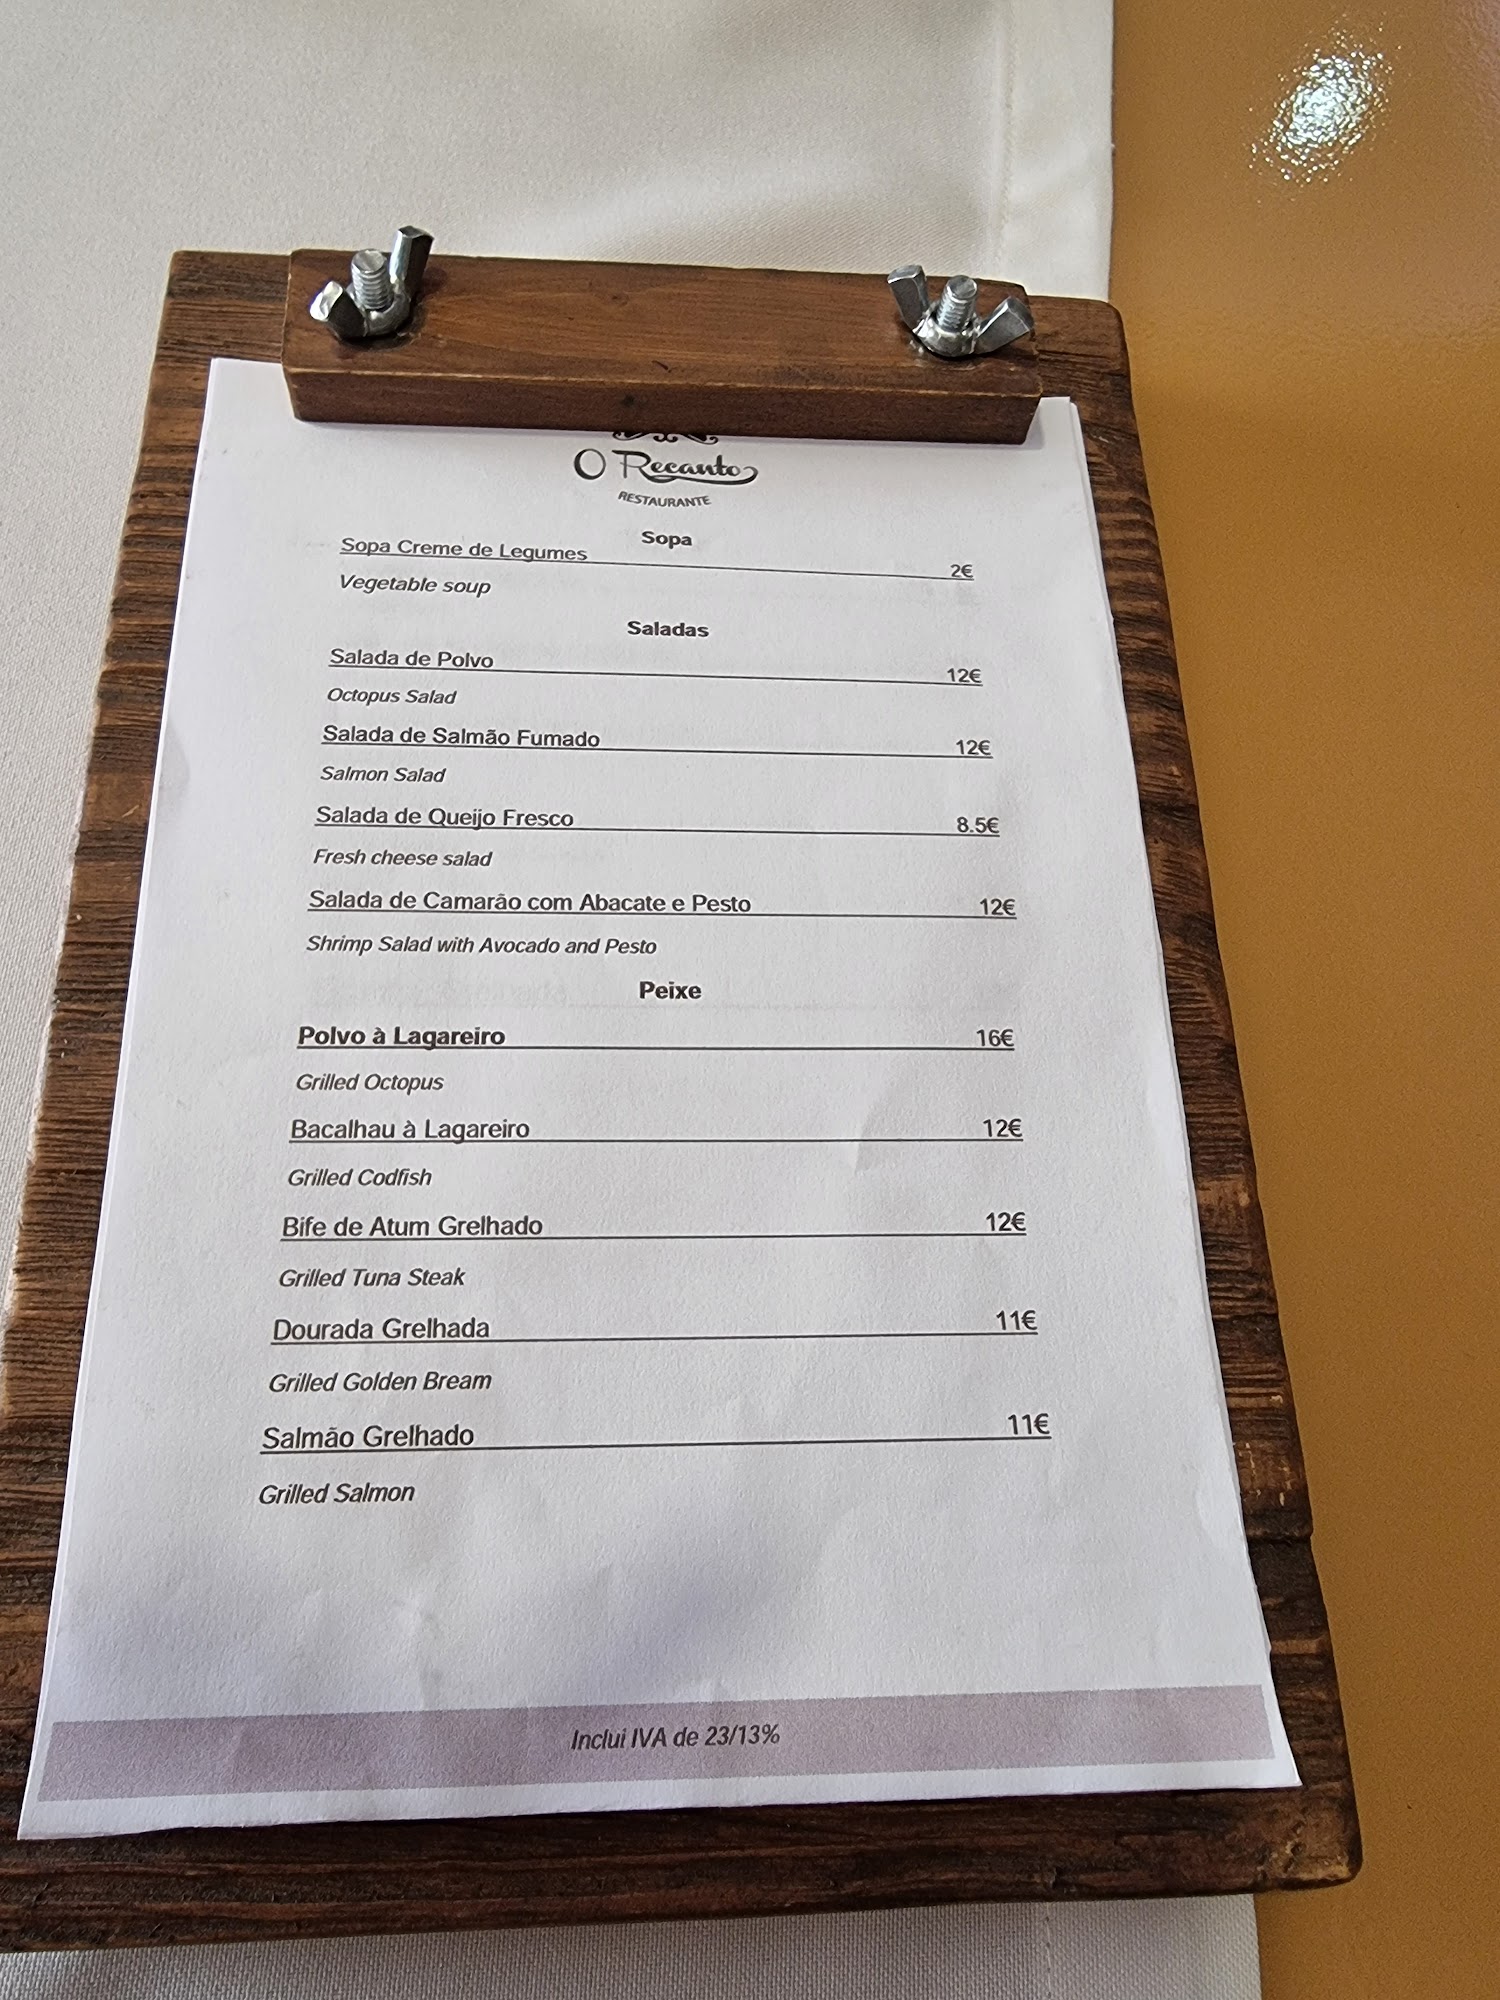 O Recanto
RESTAURANTE
Sopa
Sopa Creme de Legumes 2€
Vegetable soup
Saladas
Salada de Polvo 12€
Octopus Salad
Salada de Salmão Fumado 12€
Salmon Salad
Salada de Queijo Fresco 8.5€
Fresh cheese salad
Salada de Camarão com Abacate e Pesto 12€
Shrimp Salad with Avocado and Pesto
Peixe
Polvo à Lagareiro 16€
Grilled Octopus
Bacalhau à Lagareiro 12€
Grilled Codfish
Bife de Atum Grelhado 12€
Grilled Tuna Steak
Dourada Grelhada 11€
Grilled Golden Bream
Salmão Grelhado 11€
Grilled Salmon
Inclui IVA de 23/13%